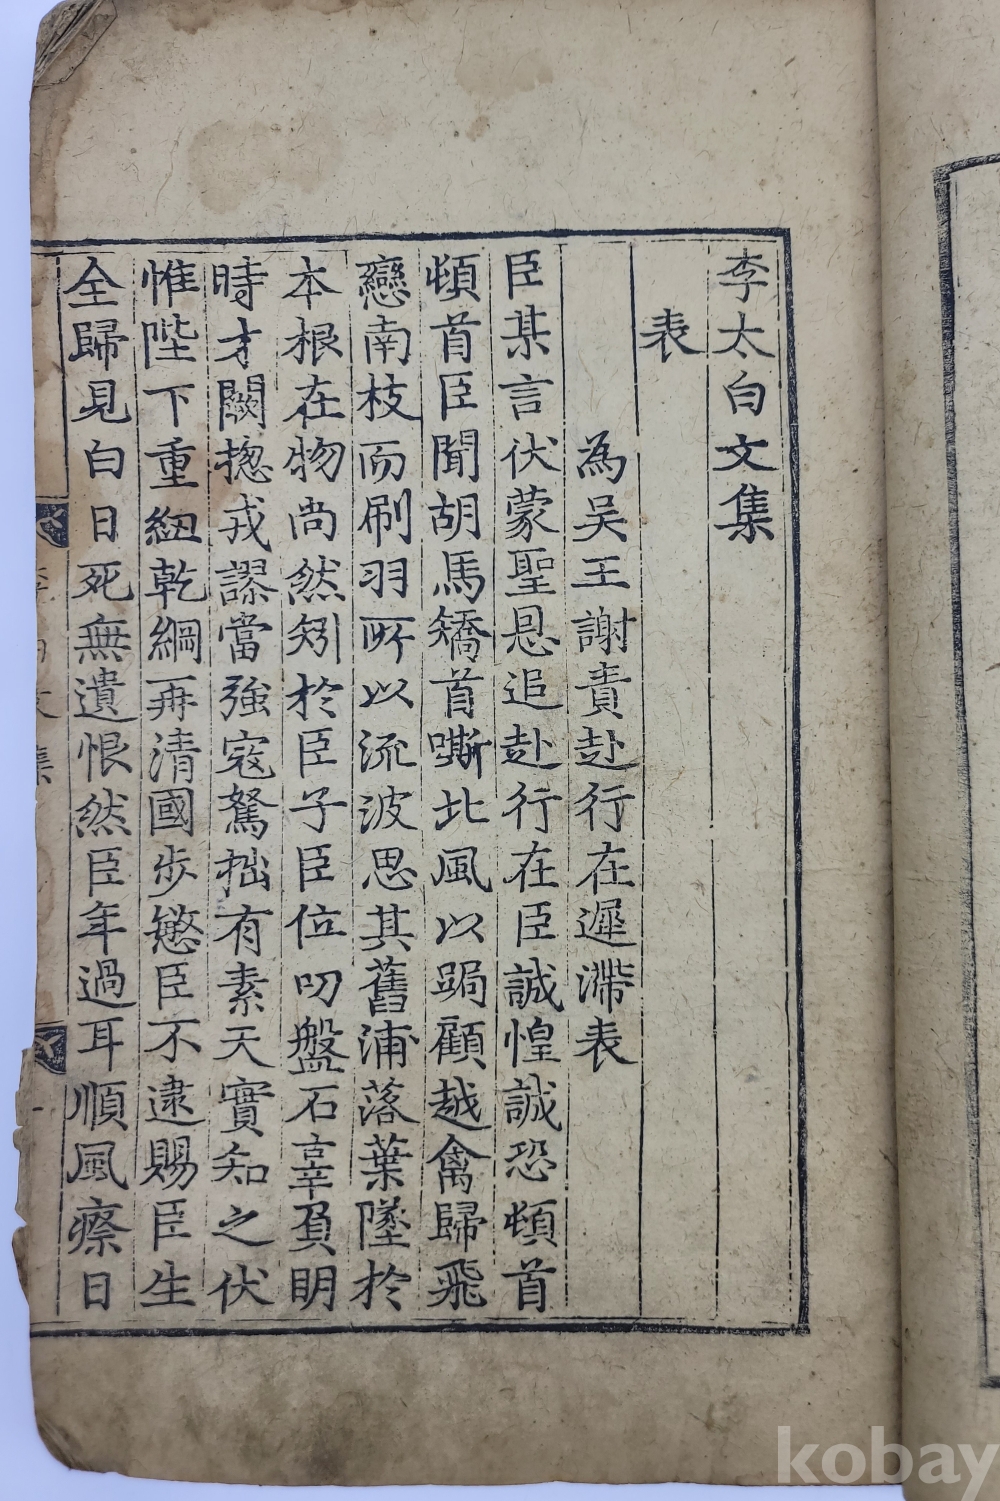 李太白文集
表
為吴王謝責赴行在遲滯表
臣某言伏蒙聖恩追赴行在臣誠惶誠恐頓首
頓首臣聞胡馬矯首嘶北風以跼顧越禽歸飛
戀南枝而刷羽所以流波思其舊浦落葉墜於
本根在物尚然矧於臣子臣位叨盤石辜負明
時才闕揔戎謬當強寇駑拙有素天實知之伏
惟陛下重紐乾綱再清國步愍臣不逮賜臣生
全歸見白日死無遺恨然臣年過耳順風瘵日
集
kobay